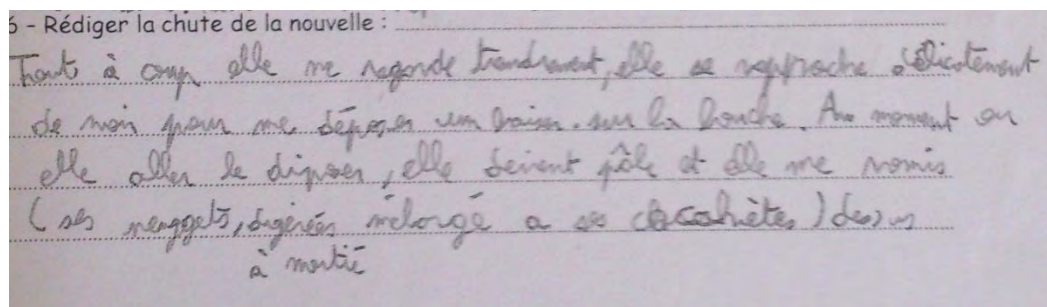 6 - Rédiger la chute de la nouvelle :
Tout à coup elle me regarde trendrement, elle se rapproche délicatement
de moi pour me déposer un baiser sur la bouche. Au moment ou
elle aller le diposer, elle devient pâle et elle me vomis
(ses neuggets, digérées mélangé a ses cacahètes) dessus
à moitié